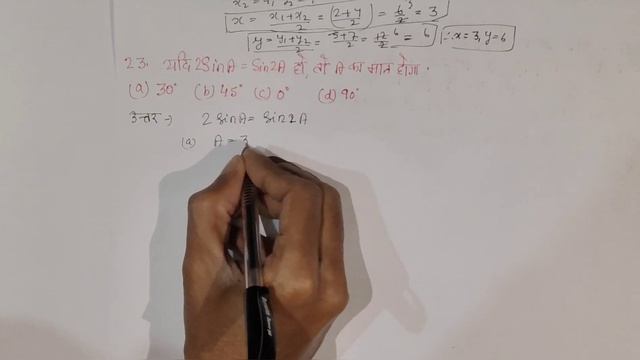 x = x₁+x₂/2 = (2+4/2) = 6/2 = 3
y = y₁+y₂/2 = 5+7/2 = 12/2 = 6 ∴ x = 3, y = 6
23. यदि 2SinA = Sin2A हो, तो A का मान होगा.
(a) 30° (b) 45° (c) 0° (d) 90°
उत्तर → 2 SinA = Sin2A
(a) A = 3